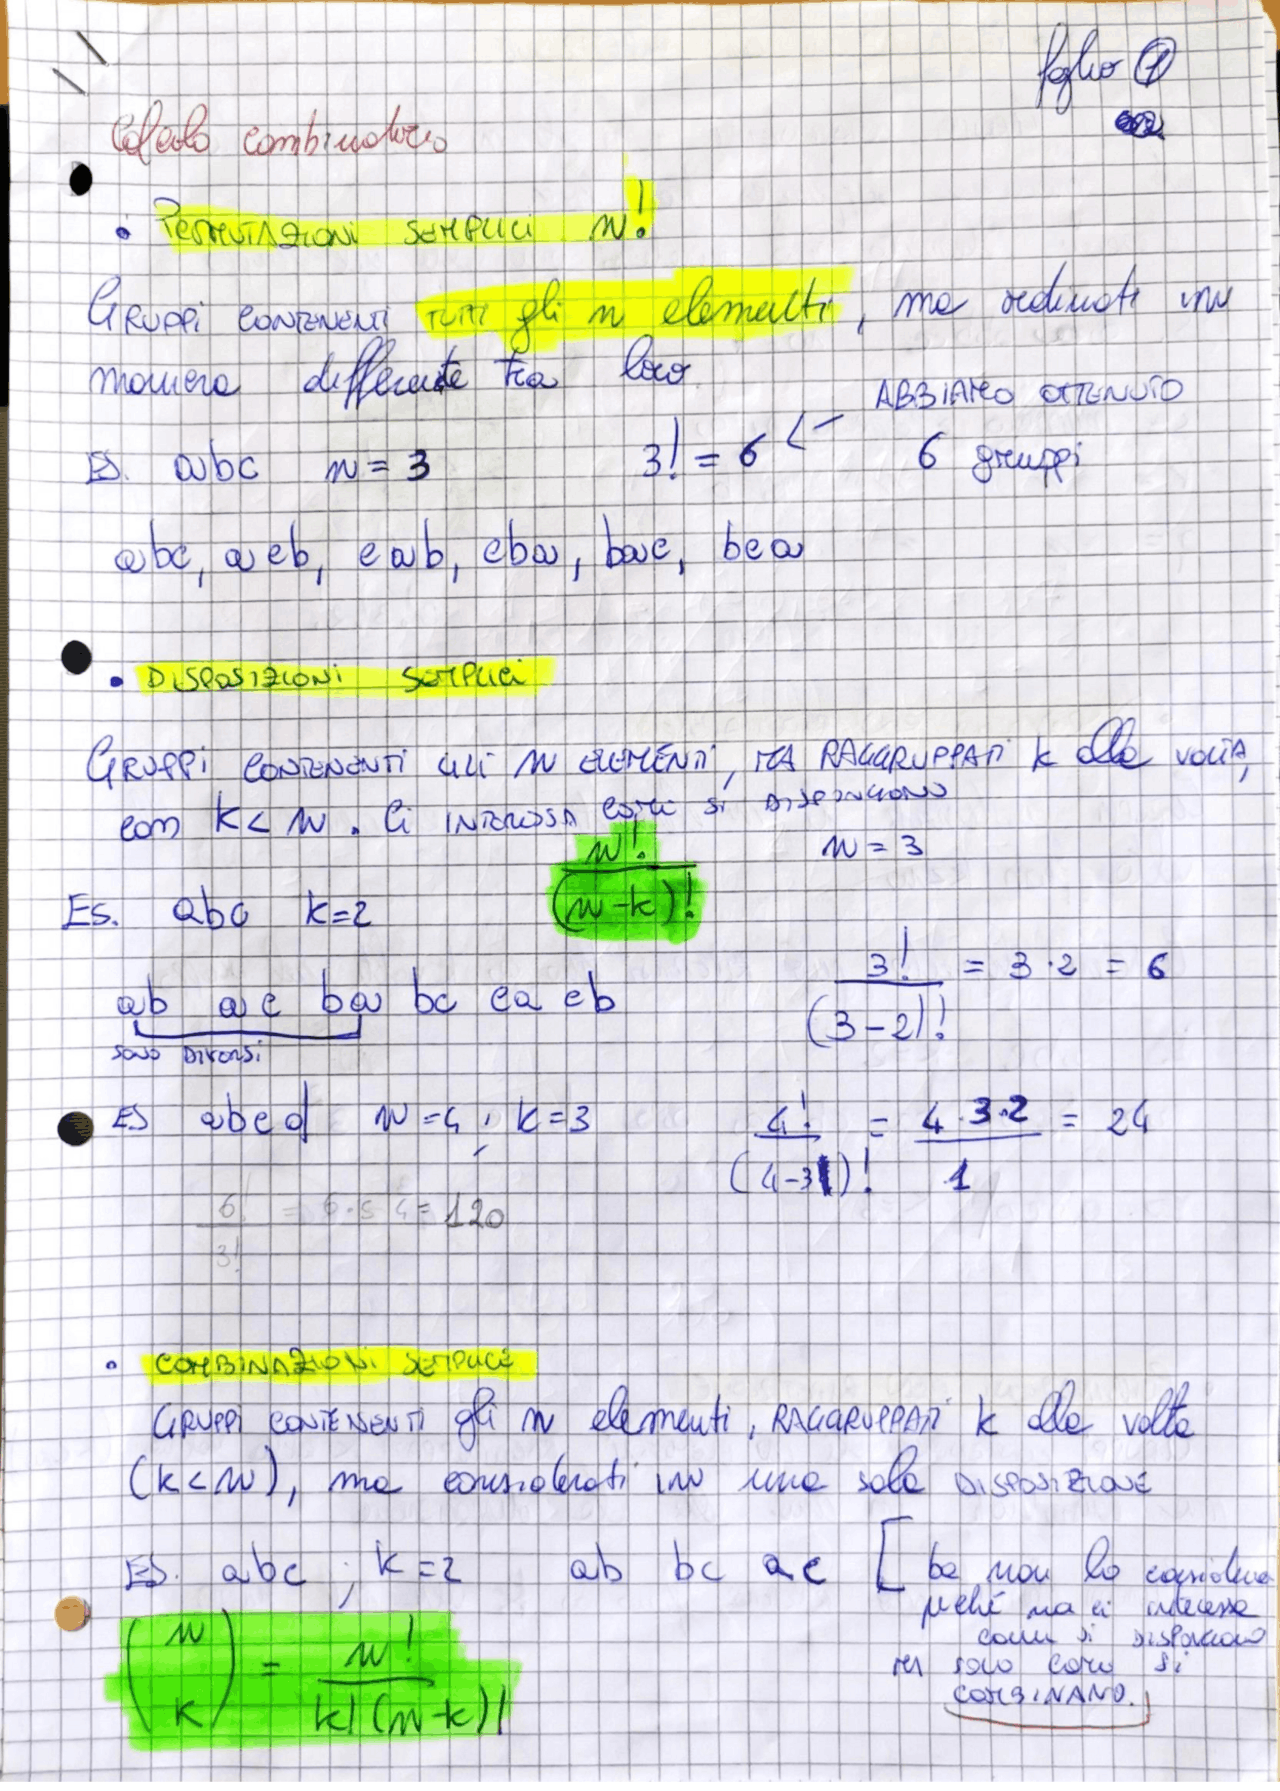 foglio 1
Calcolo combinatorio
• PERMUTAZIONI SEMPLICI n!
GRUPPI CONTENENTI TUTTI gli n elementi, ma ordinati in
maniera differente tra loro
ABBIAMO OTTENUTO
Es. abc n = 3 3! = 6 <- 6 gruppi
abc, acb, cab, cba, bac, bca
• DISPOSIZIONI SEMPLICI
GRUPPI CONTENENTI GLI N ELEMENTI, MA RAGGRUPPATI k alla VOLTA,
con k < N. Ci INTERESSA come si DISPONGONO
n! / (n-k)! n = 3
Es. abc k=2
3! / (3-2)! = 3·2 = 6
ab ac ba bc ca cb
SONO DIVERSI
ES abcd N=4; k=3 4! / (4-3)! = 4·3·2 / 1 = 24
6! / 3! = 6·5 4 = 120
• COMBINAZIONI SEMPLICE
GRUPPI CONTENENTI gli n elementi, RAGGRUPPATI k alla volta
(k<N), ma considerati in una sola DISPOSIZIONE
ES. abc ; k=2 ab bc ac [ ba non lo considero
perché non ci interessa
come si DISPONGONO
ma solo come si
COMBINANO.
(n k) = n! / k! (n-k)!